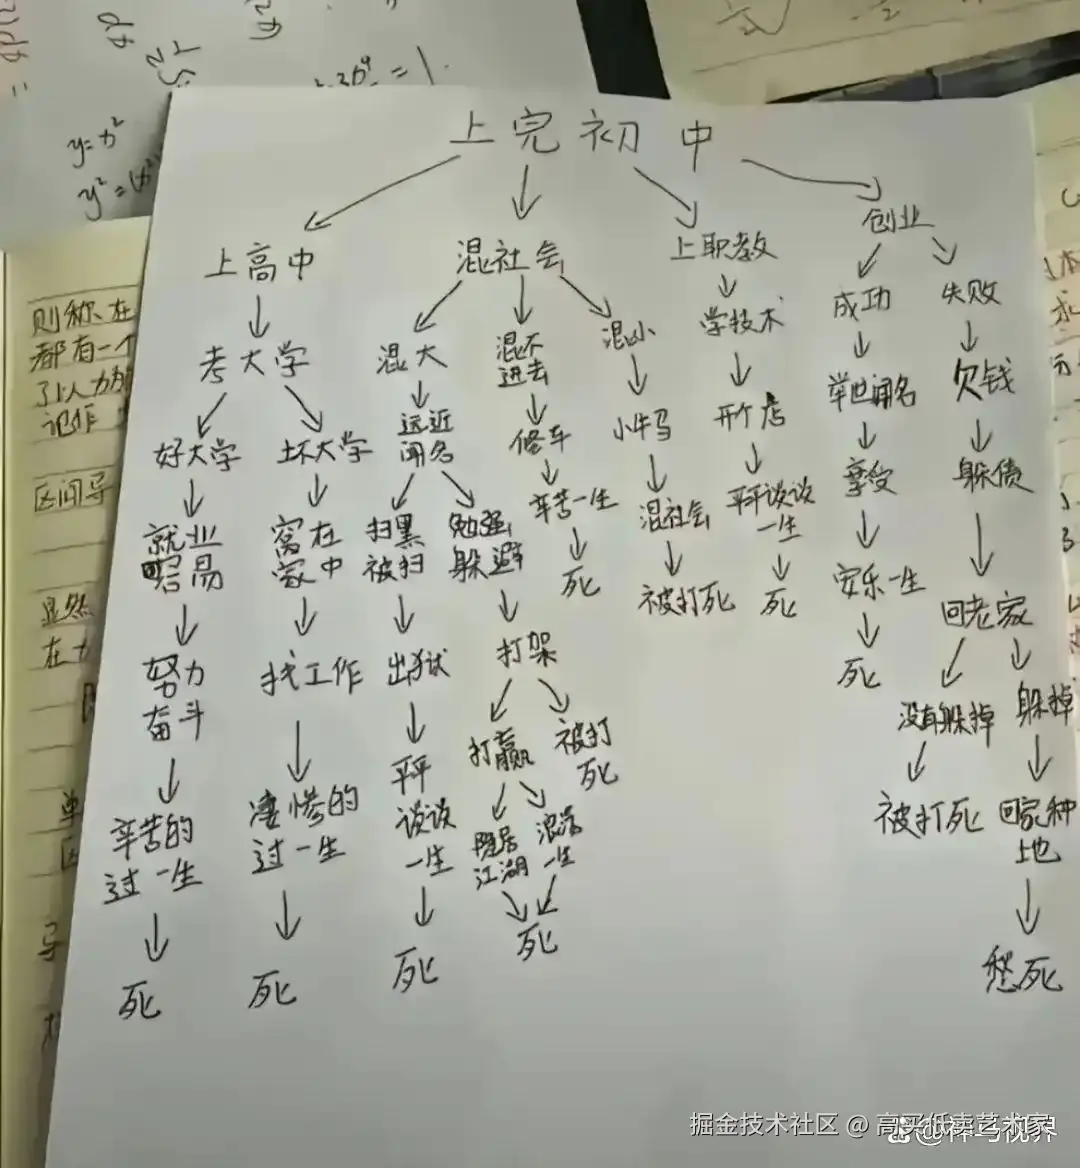 上完初中
上高中
混社会
上职教
创业
考大学
混大
混不
进去
混小
学技术
成功
失败
好大学
坏大学
远近
闻名
修车
小牛马
开个店
举世闻名
欠钱
就业
容易
窝在
家中
扫黑
被扫
勉强
躲避
辛苦一生
混社会
平平谈谈
一生
享受
躲债
努力
奋斗
找工作
出狱
打架
死
被打死
死
安乐一生
回老家
辛苦的
过一生
凄惨的
过一生
平平
谈谈
一生
打赢
被打
死
死
没有躲掉
躲掉
隐居
江湖
浪荡
一生
被打死
回家种
地
死
死
死
死
愁死
y=x²
=1.
则称在
都有一个
记作
区间导
显然
掘金技术社区 @ 高买低卖艺术家